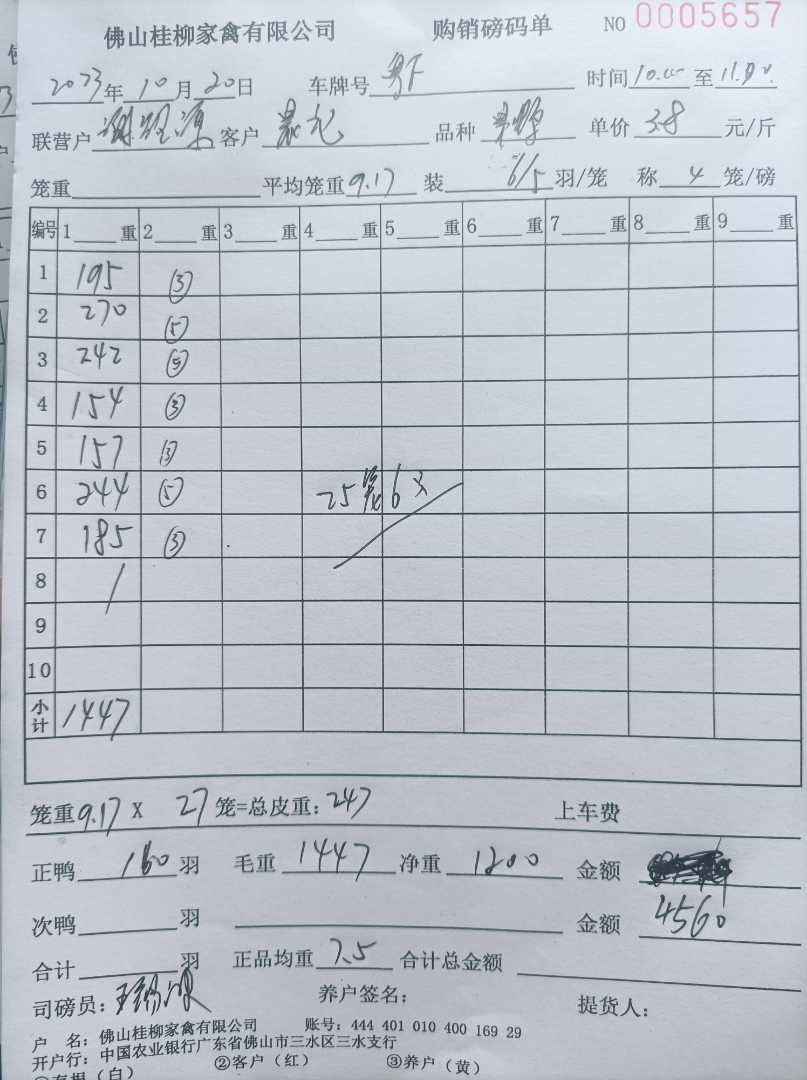 佛山桂柳家禽有限公司 购销磅码单 NO 0005657
2023年10月20日 车牌号 粤F 时间10.00至11.
联营户 客户 品种 单价 3.8 元/斤
笼重 平均笼重 9.17 装 6/5 羽/笼 称 4 笼/磅
编号 1 重 2 重 3 重 4 重 5 重 6 重 7 重 8 重 9 重
1 195 ③
2 270 ⑤
3 242 ⑤
4 154 ③
5 157 ③
6 244 ⑤ 25笼6只
7 185 ③
8
9
10
小计 1447
笼重9.17 X 27 笼=总皮重: 247 上车费
正鸭 160 羽 毛重 1447 净重 1200 金额
次鸭 羽 金额 4560
合计 羽 正品均重 7.5 合计总金额
司磅员: 养户签名: 提货人:
户 名: 佛山桂柳家禽有限公司 账号: 444 401 010 400 169 29
开户行: 中国农业银行广东省佛山市三水区三水支行
①存根(白) ②客户(红) ③养户(黄)